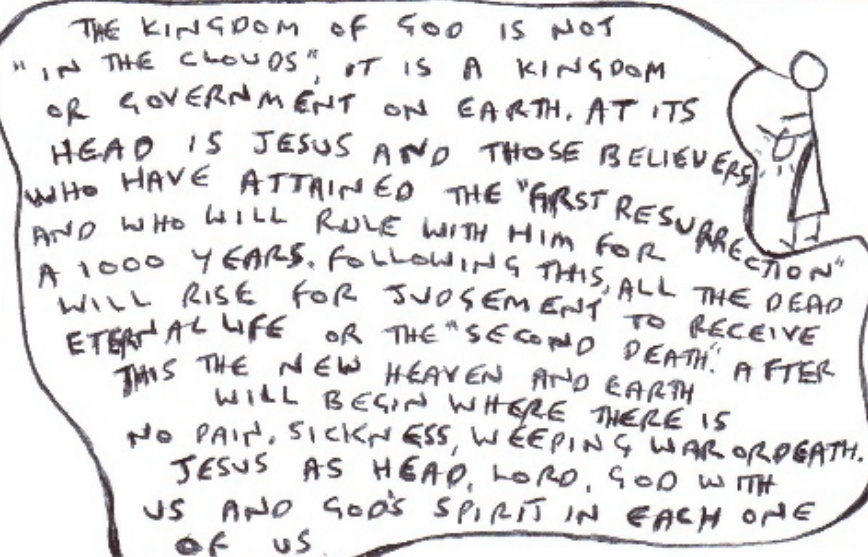 THE KINGDOM OF GOD IS NOT
"IN THE CLOUDS", IT IS A KINGDOM
OR GOVERNMENT ON EARTH. AT ITS
HEAD IS JESUS AND THOSE BELIEVERS
WHO HAVE ATTAINED THE "FIRST RESURRECTION"
AND WHO WILL RULE WITH HIM FOR
A 1000 YEARS. FOLLOWING THIS, ALL THE DEAD
WILL RISE FOR JUDGEMENT TO RECEIVE
ETERNAL LIFE OR THE "SECOND DEATH". AFTER
THIS THE NEW HEAVEN AND EARTH
WILL BEGIN WHERE THERE IS
NO PAIN, SICKNESS, WEEPING WAR OR DEATH.
JESUS AS HEAD, LORD, GOD WITH
US AND GOD'S SPIRIT IN EACH ONE
OF US